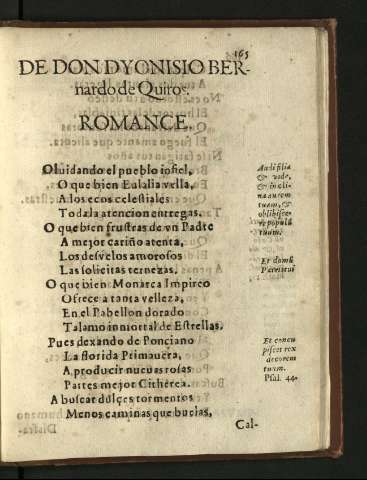 165
DE DON DYONISIO BER-
nardo de Quiros.
ROMANCE.
Oluidando el pueblo infiel,
O que bien Eulalia vella,
A los ecos celestiales
Toda la atencion entregas.
O que bien frustras de vn Padre
A mejor cariño atenta,
Los desvelos amorosos
Las solicitas ternezas.
O que bien Monarca Impireo
Ofrece a tanta velleza,
En el Pabellon dorado
Talamo inmortal de Estrellas.
Pues dexando de Ponciano
La florida Primauera,
A producir nueuas rosas
Partes mejor Citherea.
A buscar dulçes tormentos
Menos caminas que buelas,
Cal-
Audi filia
& vide,
& inclina
aurem
tuam, &
obliuisce-
re populũ
tuum.
Et domũ
Patris tui
Et concu
piscet rex
decorem
tuum.
Psal. 44.